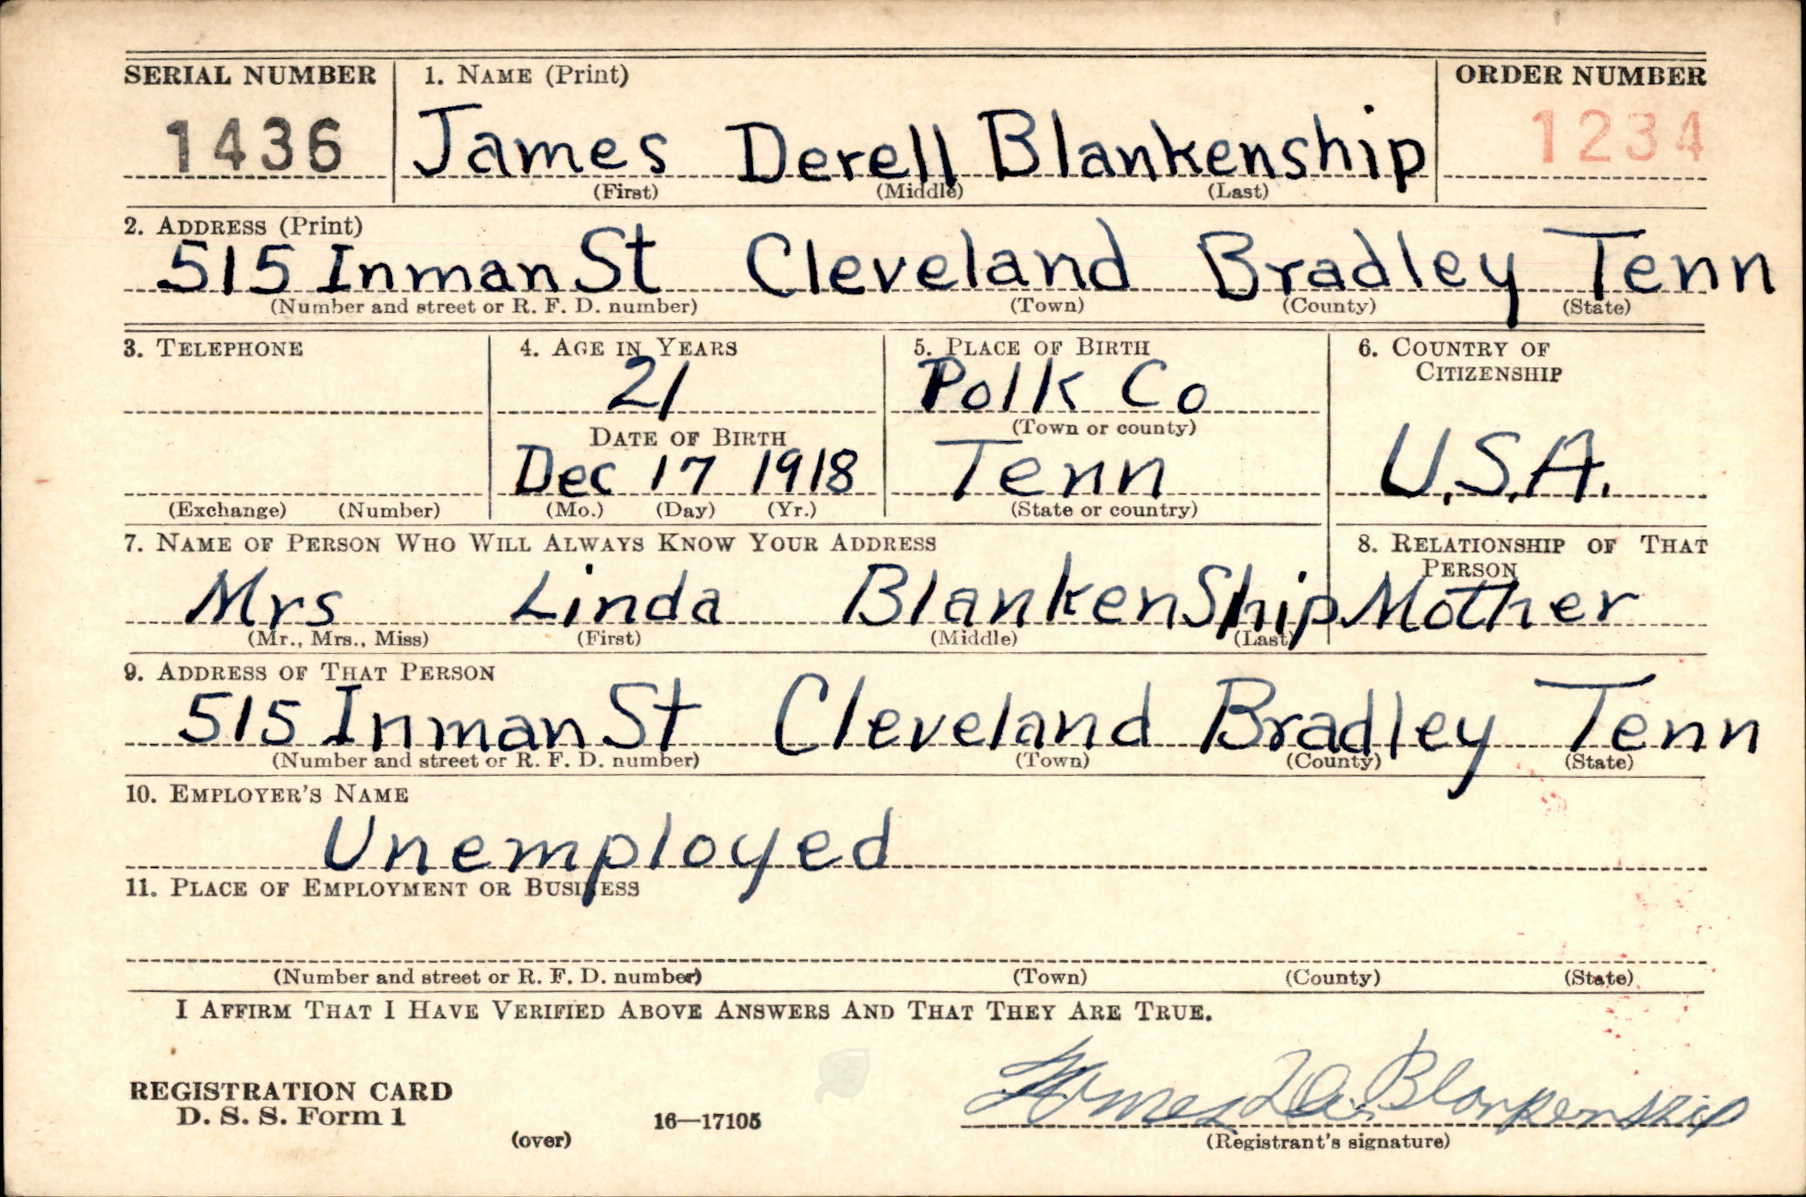 SERIAL NUMBER 1. NAME (Print) ORDER NUMBER
1436 James Derell Blankenship 1234
(First) (Middle) (Last)
2. ADDRESS (Print)
515 Inman St Cleveland Bradley Tenn
(Number and street or R. F. D. number) (Town) (County) (State)
3. TELEPHONE 4. AGE IN YEARS 5. PLACE OF BIRTH 6. COUNTRY OF
CITIZENSHIP
21 Polk Co
(Town or county)
DATE OF BIRTH
Dec 17 1918 Tenn U.S.A.
(Exchange) (Number) (Mo.) (Day) (Yr.) (State or country)
7. NAME OF PERSON WHO WILL ALWAYS KNOW YOUR ADDRESS 8. RELATIONSHIP OF THAT
PERSON
Mrs Linda BlankenShip Mother
(Mr., Mrs., Miss) (First) (Middle) (Last)
9. ADDRESS OF THAT PERSON
515 Inman St Cleveland Bradley Tenn
(Number and street or R. F. D. number) (Town) (County) (State)
10. EMPLOYER'S NAME
Unemployed
11. PLACE OF EMPLOYMENT OR BUSINESS
(Number and street or R. F. D. number) (Town) (County) (State)
I AFFIRM THAT I HAVE VERIFIED ABOVE ANSWERS AND THAT THEY ARE TRUE.
REGISTRATION CARD
D. S. S. Form 1 16—17105 James Blankenship
(over) (Registrant's signature)